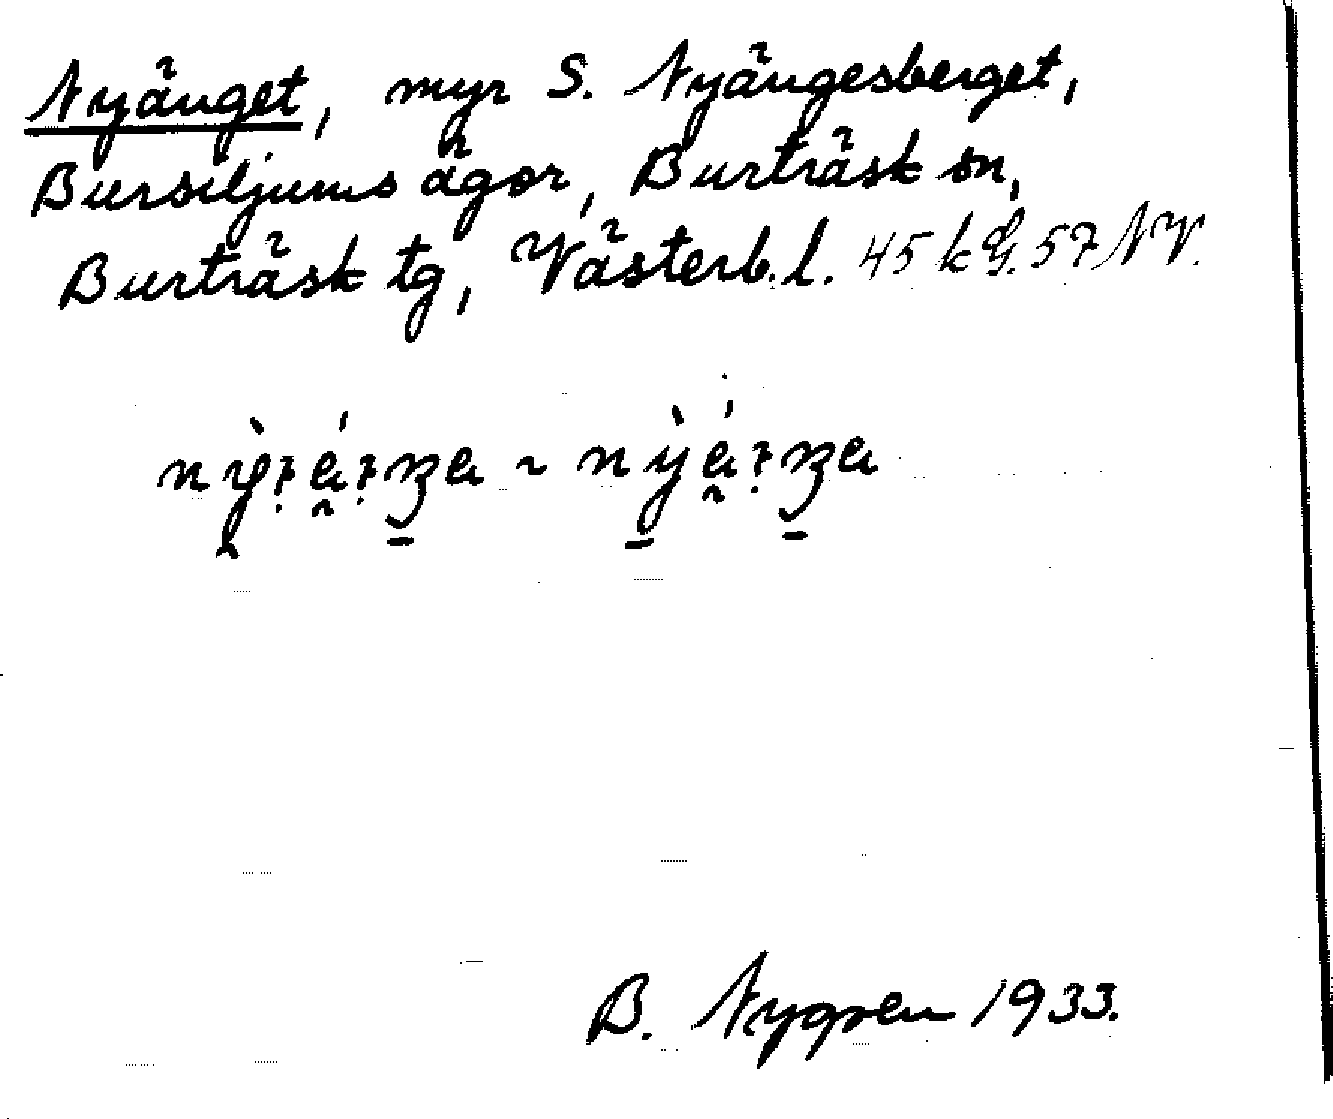 Nyänget, myr S. Nyängesberget,
Bursiljums ägor, Burträsk sn,
Burträsk tg, Västerb. l. 45 k G. 57 NV.
B. Nygren 1933.